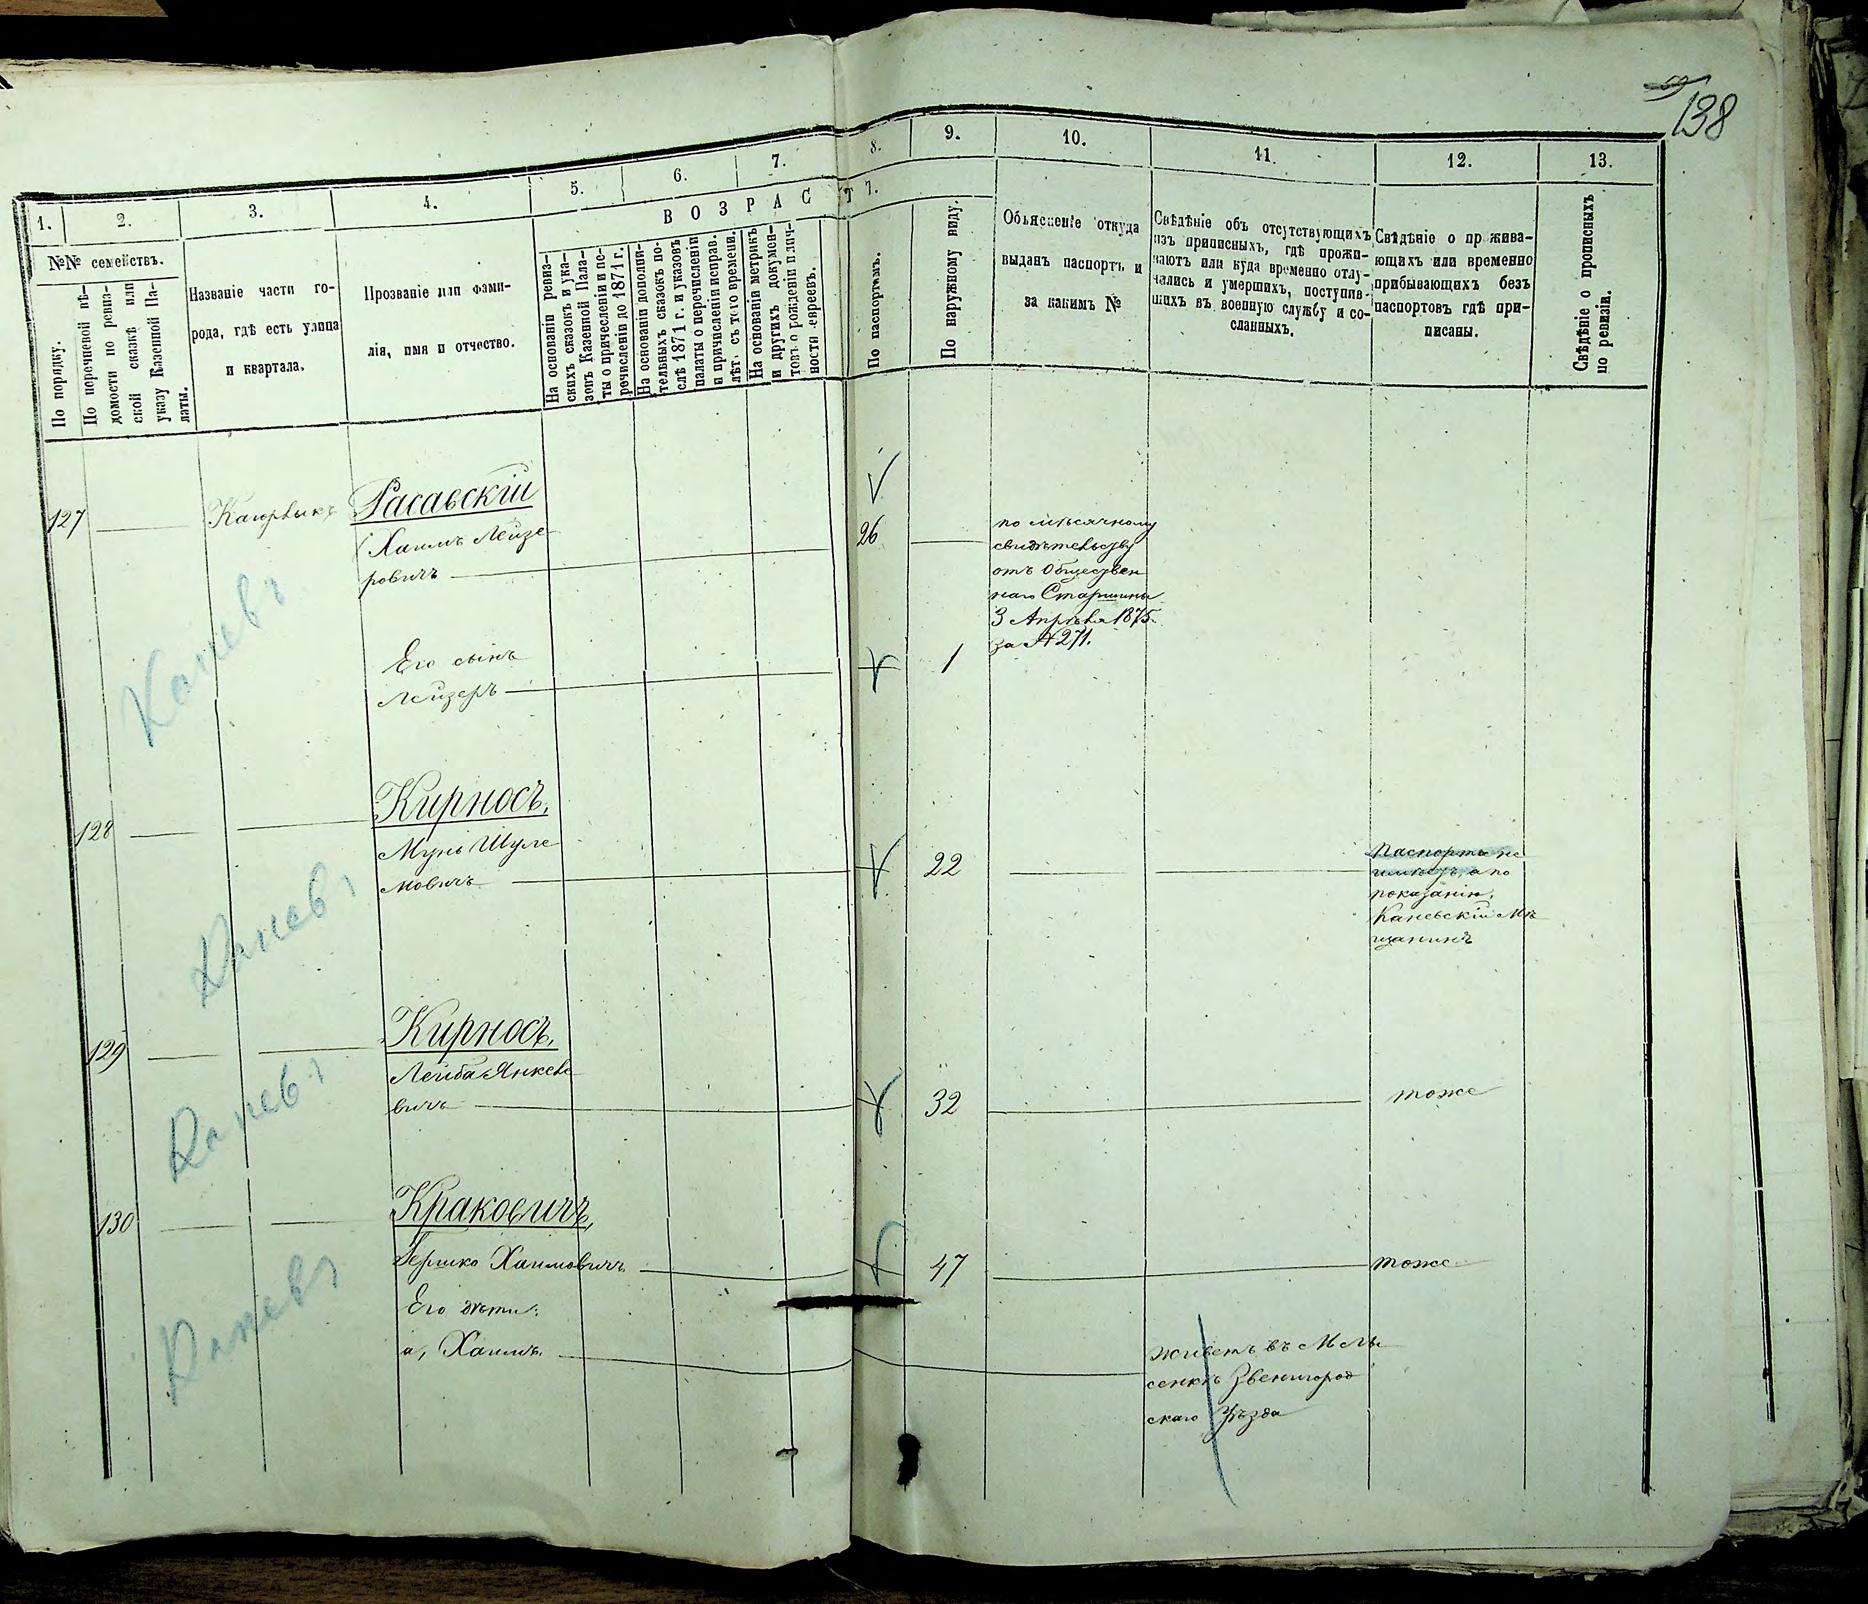 138
1.
2.
3.
4.
5.
6.
7.
8.
9.
10.
11.
12.
13.
ВОЗРАСТЪ.
№№ семействъ.
По порядку.
По перечневой вѣ-
домости по ревиз-
ской сказкѣ или
указу Казенной Па-
латы.
Названіе части го-
рода, гдѣ есть улица
и квартала.
Прозваніе или фами-
лія, имя и отчество.
На основаніи ревиз-
скихъ сказокъ и ука-
зовъ Казенной Пала-
ты о причесленіи и пе-
речислѣніи до 1871 г.
На основаніи дополни-
тельныхъ сказокъ по-
слѣ 1871 г. и указовъ
палаты о перечисленіи
и причисленіи исправ.
лѣт. съ того времени.
На основаніи метрикъ
и другихъ докумен-
товъ о рожденіи плич-
ности евреевъ.
По паспортемъ.
По наружному виду.
Объясненіе откуда
выданъ паспортъ и
за какимъ №
Свѣдѣніе объ отсутствующихъ
изъ приписныхъ, гдѣ прожи-
ваютъ или куда временно отлу-
чались и умершихъ, поступив-
шихъ въ военную службу и со-
сланныхъ.
Свѣдѣніе о прожива-
ющихъ или временно
прибывающихъ безъ
паспортовъ гдѣ при-
писаны.
Свѣдѣніе о прописныхъ
по ревизіи.
127
Кагорлыкъ
Расавскій
Хаимъ Лейзе
ровичъ
26
по мѣсячному
свидѣтельству
отъ Обществен
наго Старшины
3 Апрѣля 1875
за № 271.
Каневъ
Его сынъ
Лейзеръ
1
128
Кирносъ,
Мунь Шуле
мовичъ
22
Паспорта не
имѣетъ, а по
показанію,
Каневскій мѣ
щанинъ
Каневъ
129
Кирносъ,
Лейба Янкеле
вичъ
32
тоже
Каневъ
130
Краковичъ,
Гершко Хаимовичъ
47
тоже
Его дѣти:
а, Хаимъ.
Живетъ въ М Лы
сенкѣ Звенигород
скаго Уѣзда
Каневъ